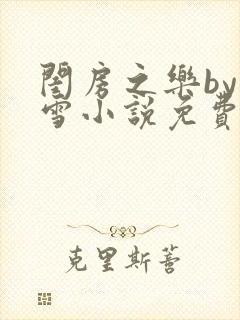 閨房之樂by
雪小說免費
克里斯蒼